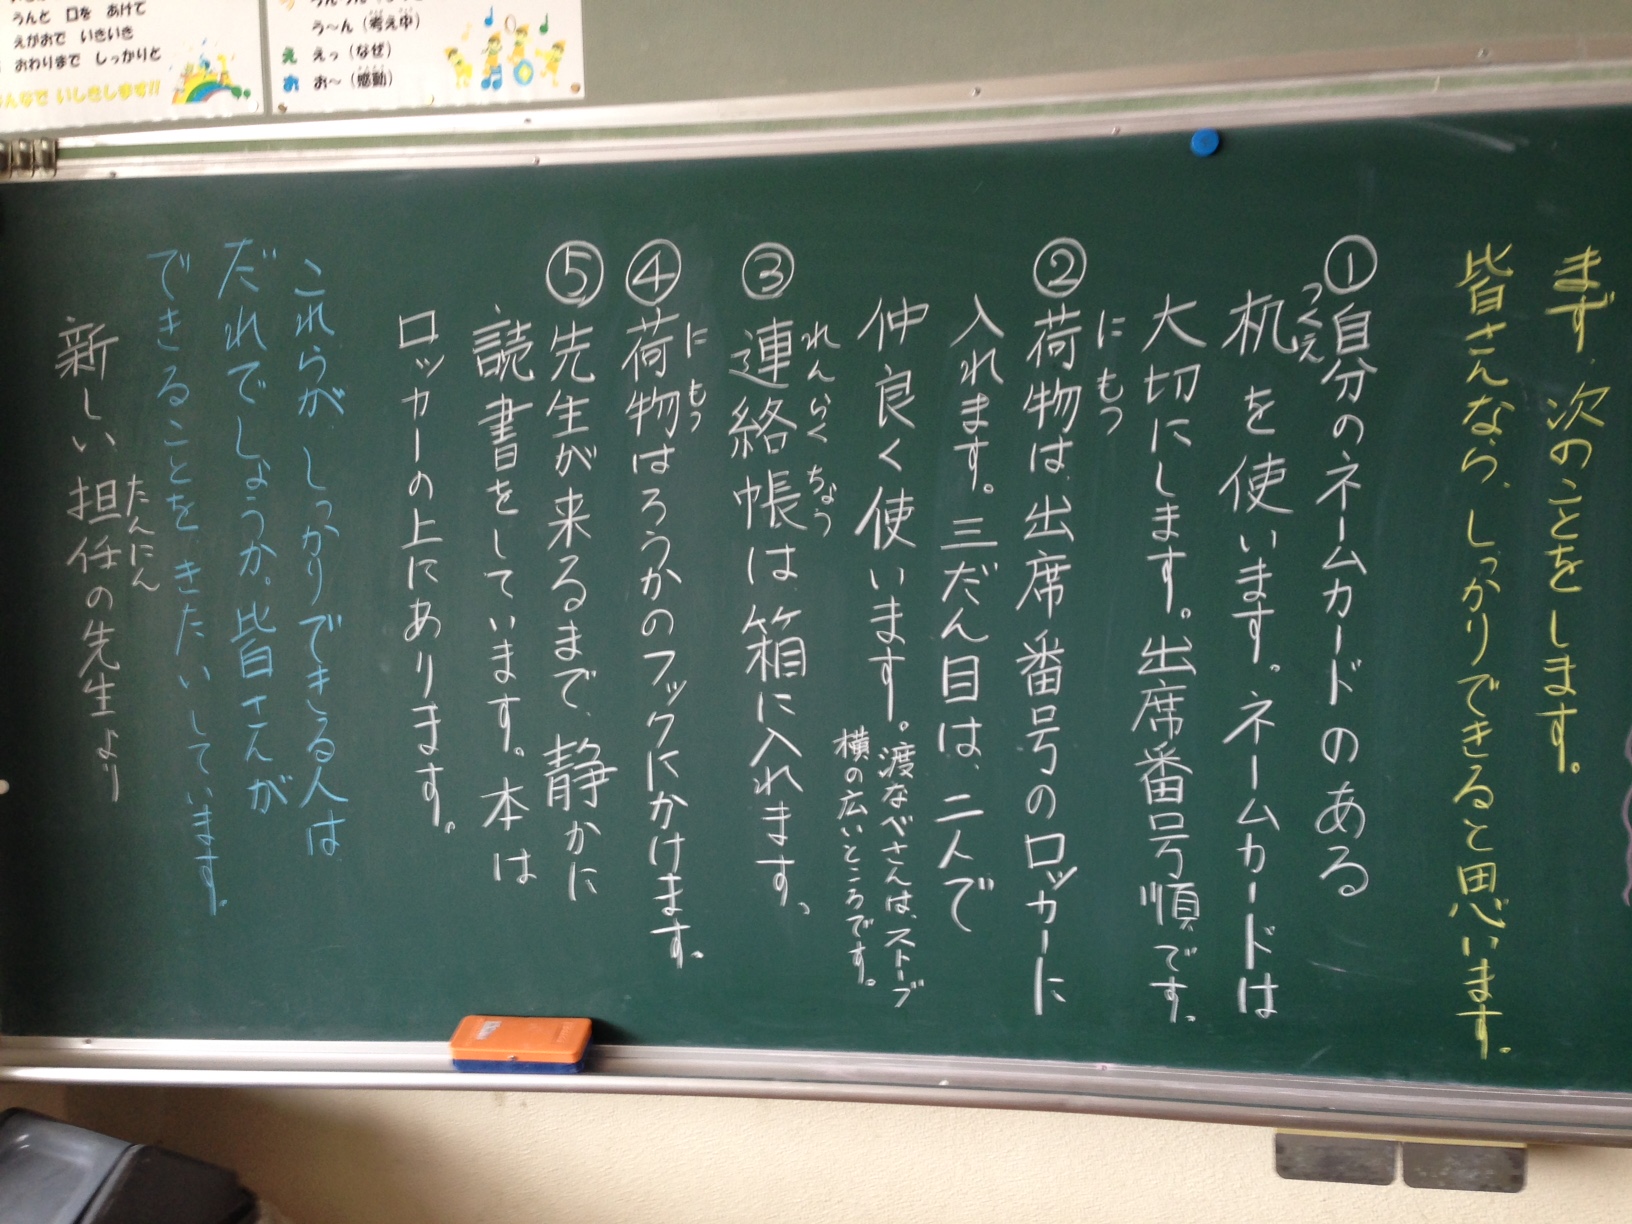 うんと 口を あけて
えがおで いきいき
おわりまで しっかりと
んなで いしきします!!
う〜ん(考え中)
え えっ(なぜ)
お お〜(感動)
まず、次のことをします。
皆さんなら、しっかりできると思います。
①自分のネームカードのある
つくえ
机を使います。ネームカードは
大切にします。出席番号順です。
にもつ
②荷物は、出席番号のロッカーに
入れます。三だん目は、二人で
仲良く使います。渡なべさんは、ストーブ
横の広いところです。
れんらくちょう
③連絡帳は、箱に入れます。
にもつ
④荷物はろうかのフックにかけます。
⑤先生が来るまで、静かに
読書をしています。本は
ロッカーの上にあります。
これらが、しっかりできる人は、
だれでしょうか。皆さんが
できることを、きたいしています。
たんにん
新しい担任の先生より